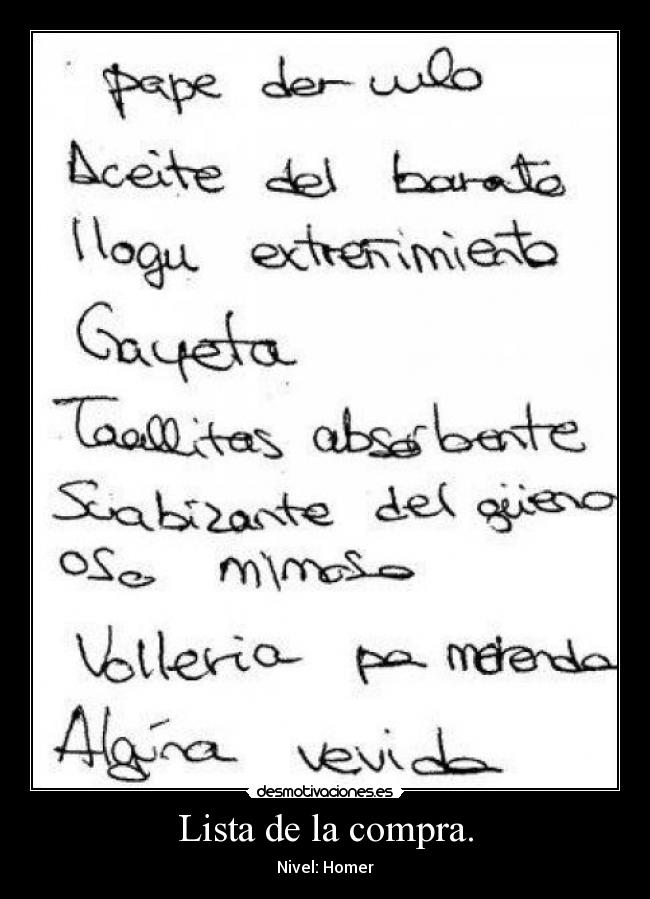 pape der culo
Aceite del barato
llogu extreñimiento
Gayeta
Taallitas absorbente
Suabizante del güeno
oso mimoso
Volleria pa merenda
Algúna vevida
desmotivaciones.es
Lista de la compra.
Nivel: Homer